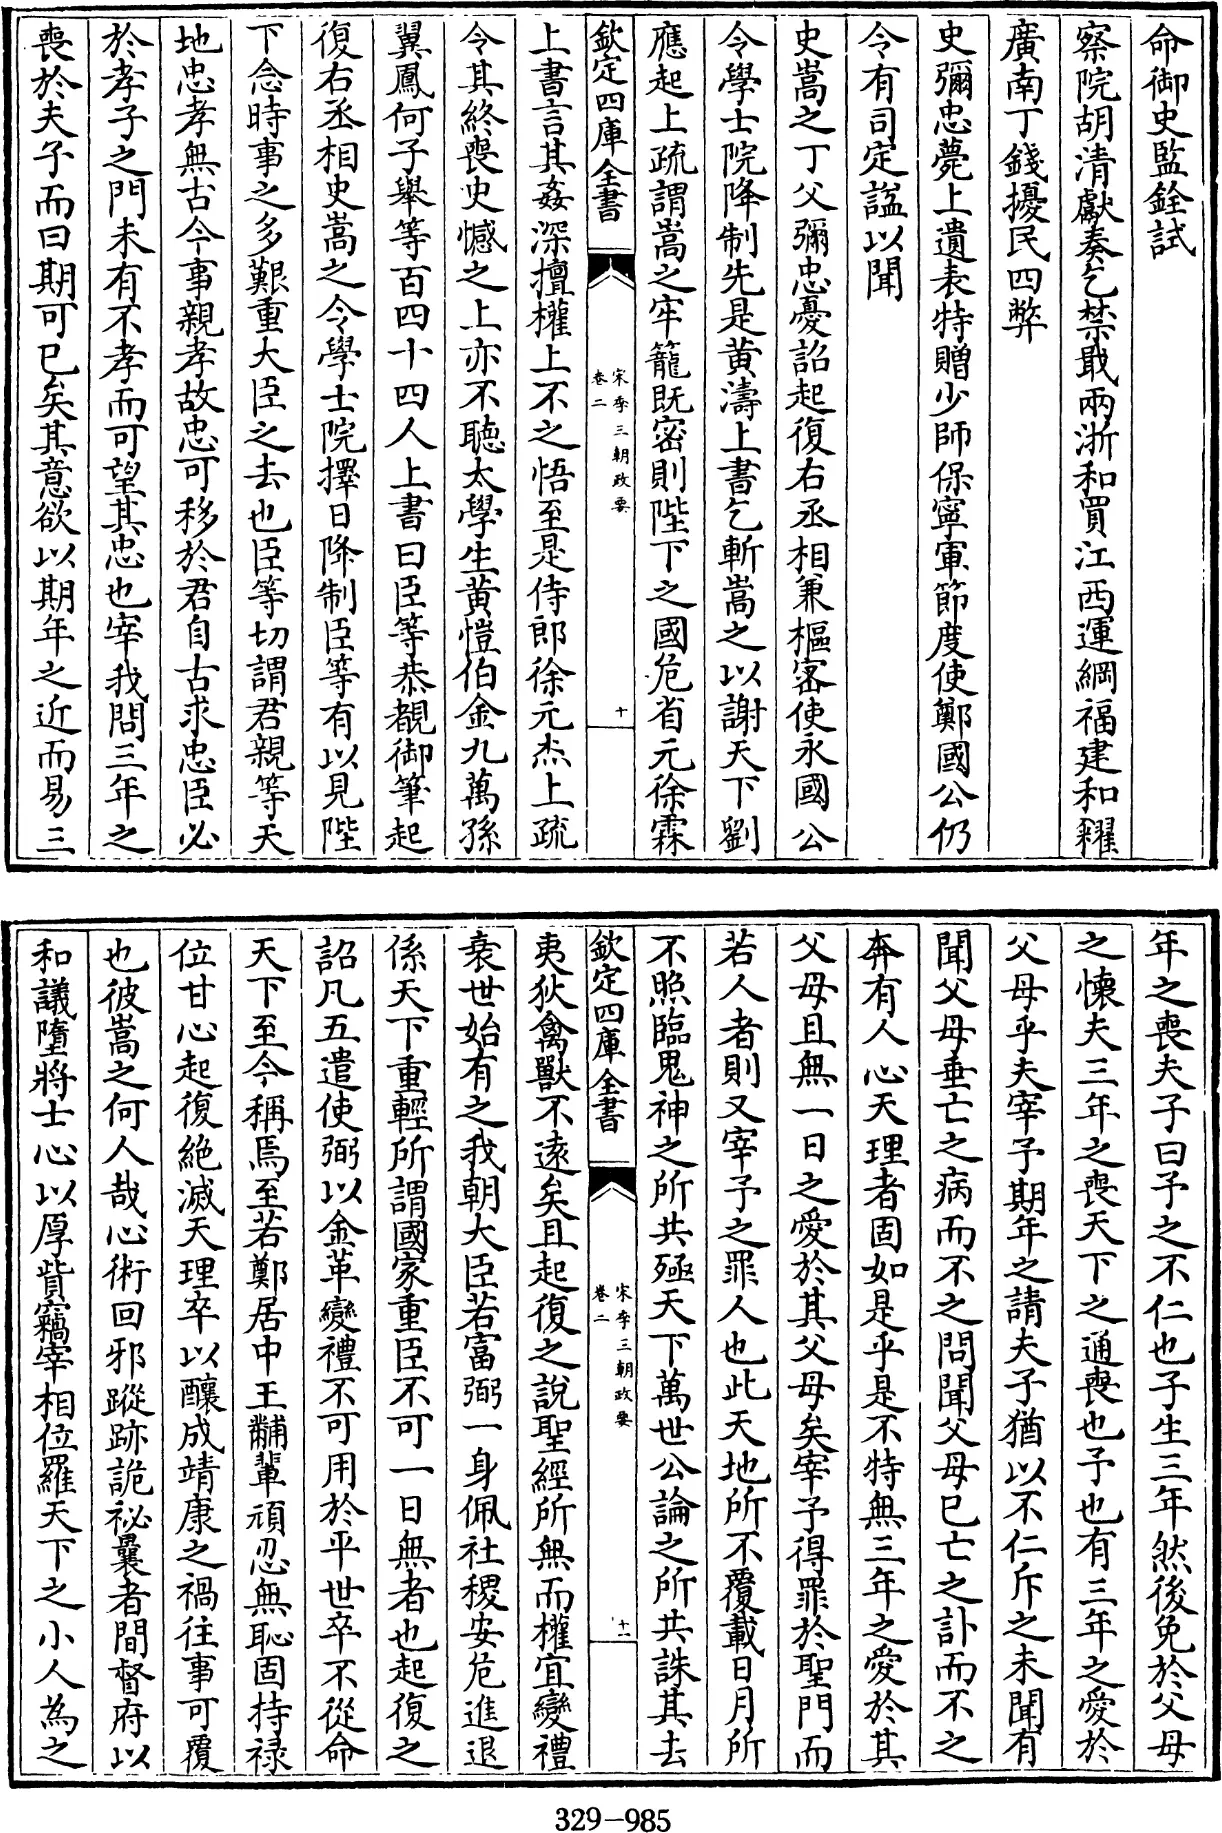 命御史監銓試
察院胡清獻奏乞禁戢兩浙和買江西運綱福建和糴
廣南丁錢擾民四弊
史彌忠薨上遺表特贈少師保寧軍節度使鄭國公仍
令有司定諡以聞
史嵩之丁父彌忠憂詔起復右丞相兼樞密使永國公
令學士院降制先是黃濤上書乞斬嵩之以謝天下劉
應起上疏謂嵩之牢籠既密則陛下之國危省元徐霖
欽定四庫全書
宋季三朝政要
卷二
十
上書言其姦深擅權上不之悟至是侍郎徐元杰上疏
令其終喪史憾之上亦不聽太學生黃愷伯金九萬孫
翼鳳何子舉等百四十四人上書曰臣等恭覩御筆起
復右丞相史嵩之令學士院擇日降制臣等有以見陛
下念時事之多艱重大臣之去也臣等切謂君親等天
地忠孝無古今事親孝故忠可移於君自古求忠臣必
於孝子之門未有不孝而可望其忠也宰我問三年之
喪於夫子而曰期可已矣其意欲以期年之近而易三
年之喪夫子曰予之不仁也子生三年然後免於父母
之懷夫三年之喪天下之通喪也予也有三年之愛於
父母乎夫宰予期年之請夫子猶以不仁斥之未聞有
聞父母垂亡之病而不之問聞父母已亡之訃而不之
奔有人心天理者固如是乎是不特無三年之愛於其
父母且無一日之愛於其父母矣宰予得罪於聖門而
若人者則又宰予之罪人也此天地所不覆載日月所
不照臨鬼神之所共殛天下萬世公論之所共誅其去
欽定四庫全書
宋季三朝政要
卷二
十一
夷狄禽獸不遠矣且起復之說聖經所無而權宜變禮
衰世始有之我朝大臣若富弼一身佩社稷安危進退
係天下重輕所謂國家重臣不可一日無者也起復之
詔凡五遣使弼以金革變禮不可用於平世卒不從命
天下至今稱焉至若鄭居中王黼輩頑忍無恥固持祿
位甘心起復絕滅天理卒以釀成靖康之禍往事可覆
也彼嵩之何人哉心術回邪蹤跡詭祕曩者開督府以
和議墮將士心以厚貲竊宰相位羅天下之小人為之
329-985